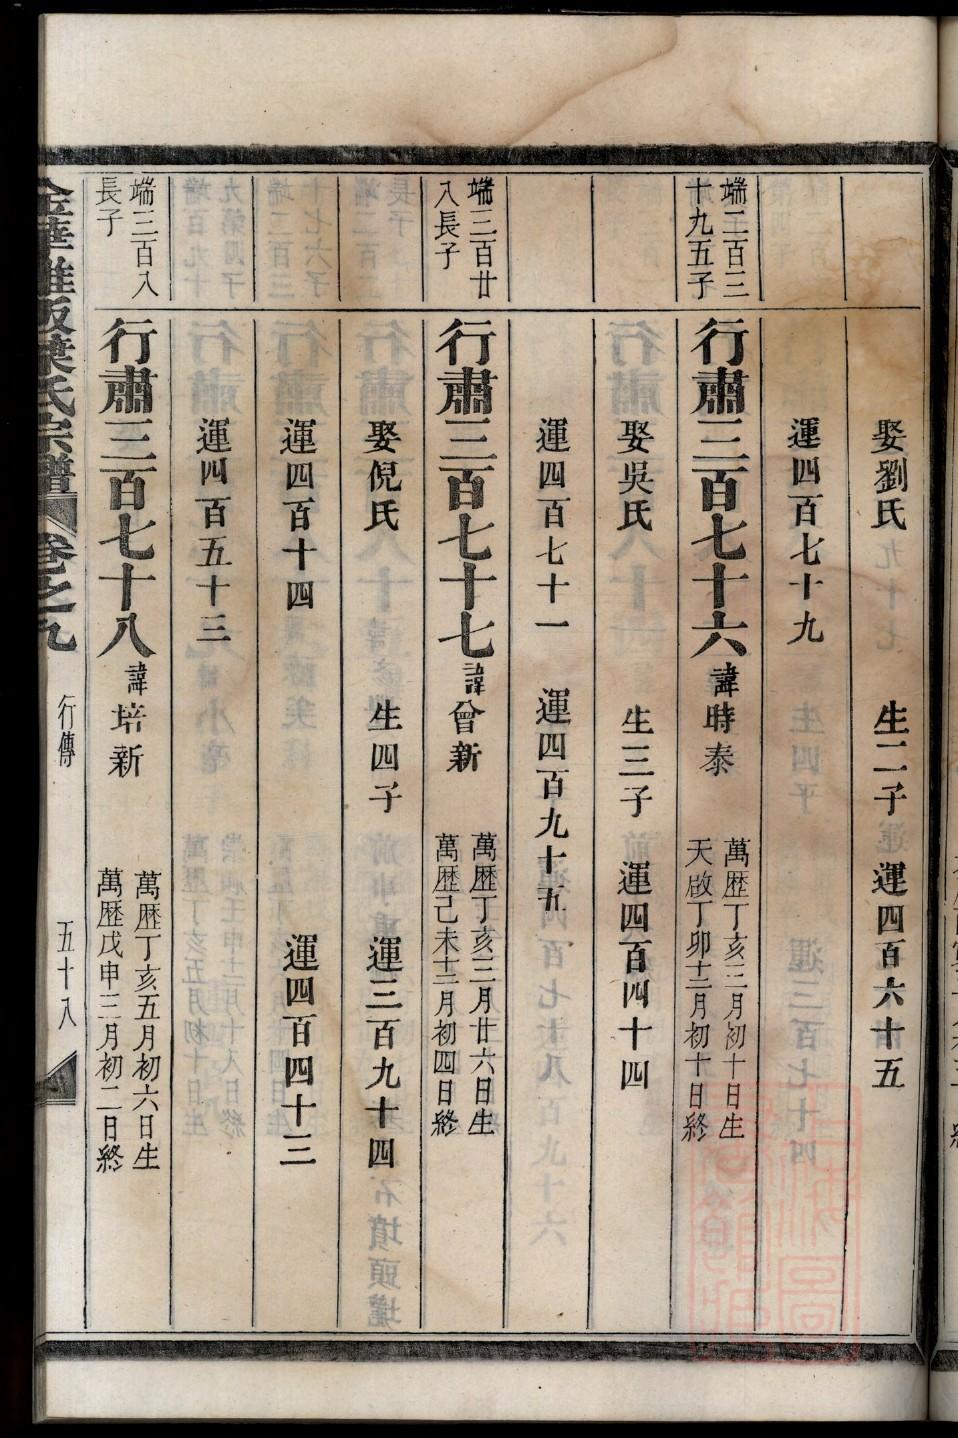 娶劉氏 生二子 運四百六十五
運四百七十九
端二百三十九五子
行肅三百七十六 諱時泰 萬歷丁亥三月初十日生 天啟丁卯十二月初十日終
娶吳氏 生三子 運四百四十四
運四百七十一 運四百九十五
端三百廿八長子
行肅三百七十七 諱曾新 萬歷丁亥三月廿六日生 萬歷己未十二月初四日終
娶倪氏 生四子 運三百九十四
運四百十四 運四百四十三
運四百五十三
端三百八長子
行肅三百七十八 諱培新 萬歷丁亥五月初六日生 萬歷戊申三月初二日終
葉氏宗譜 卷之九 行傳 五十八